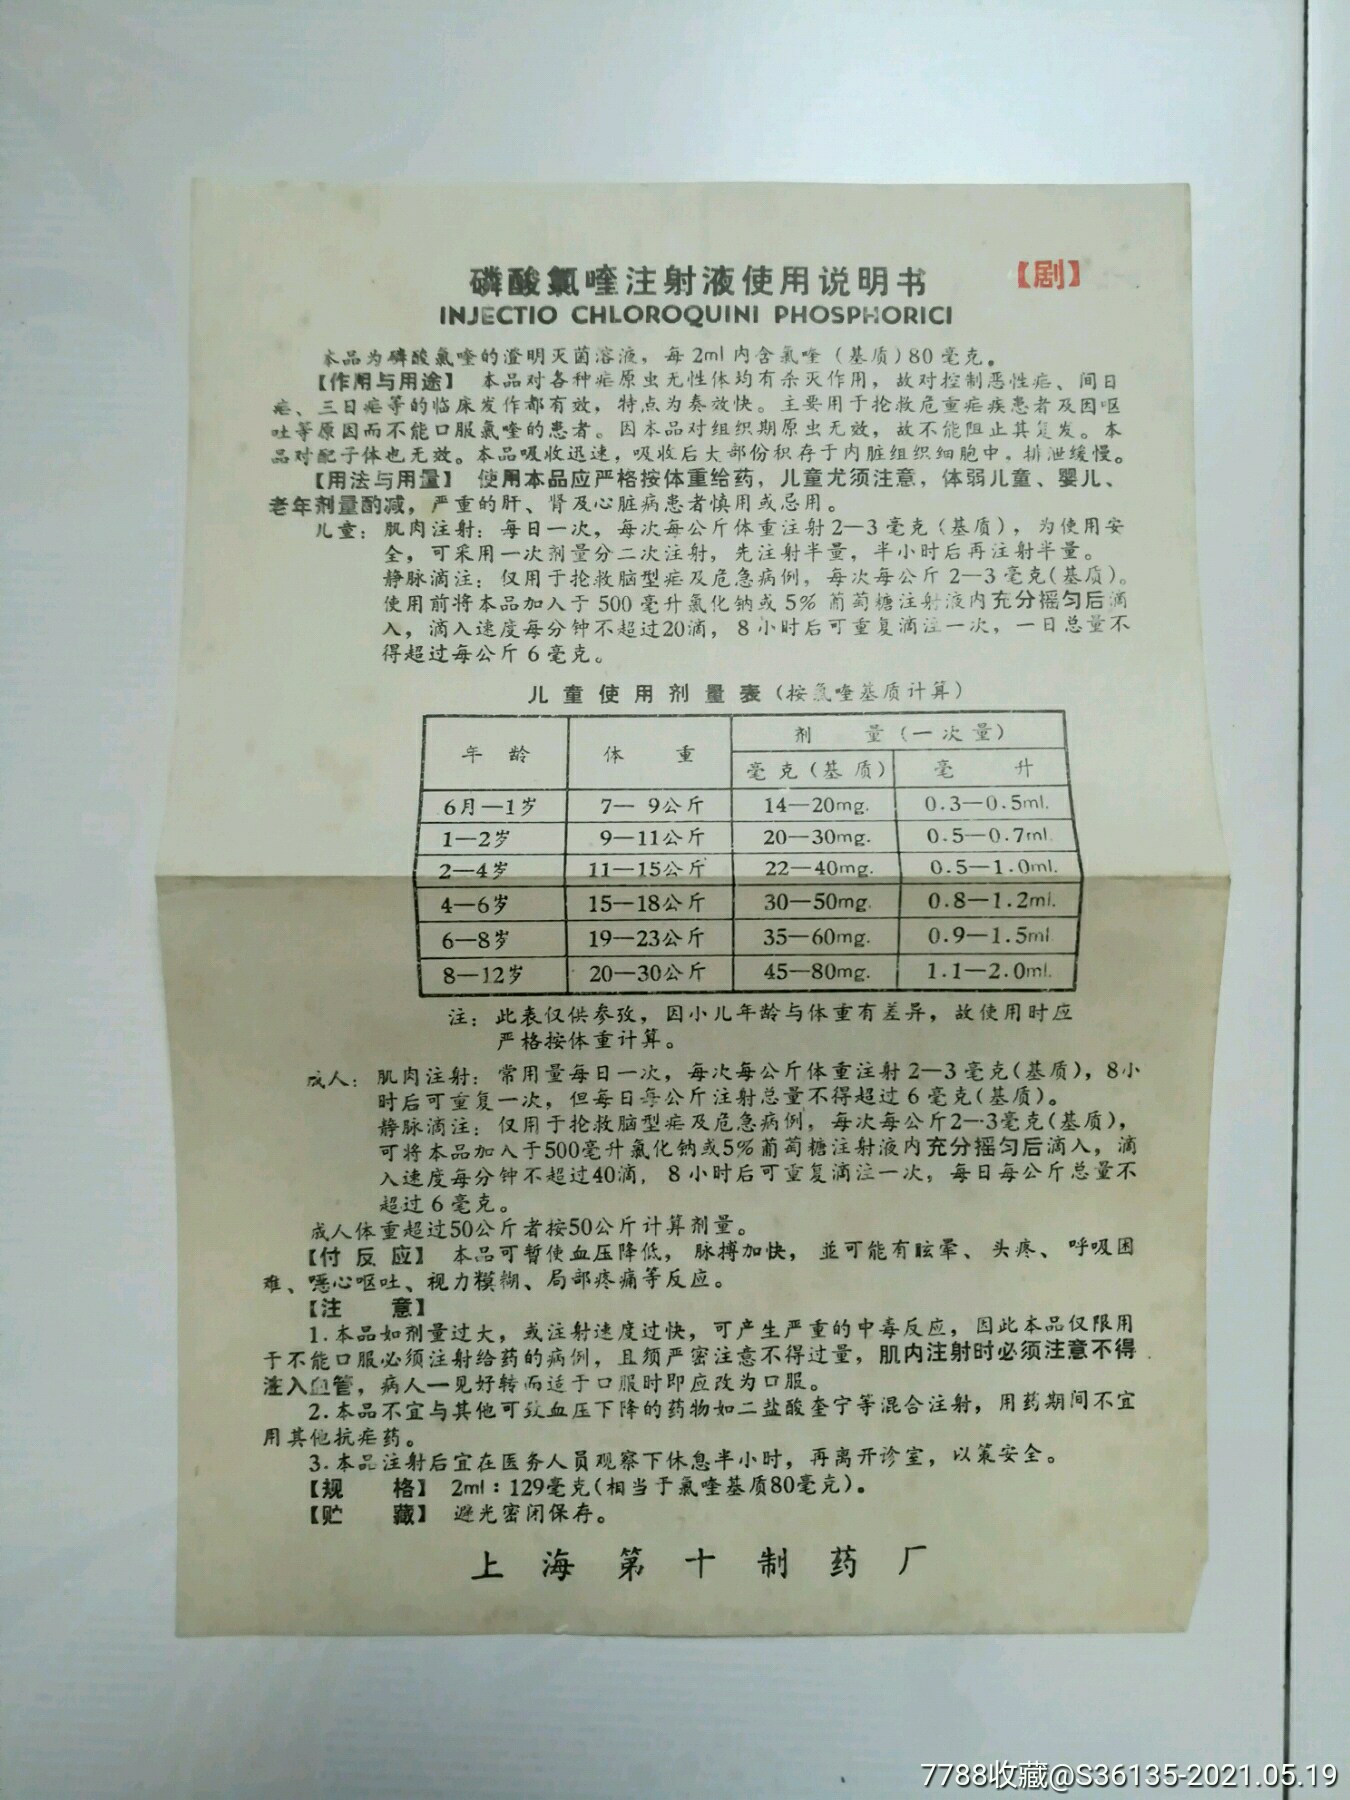 磷酸氯喹注射液使用说明书
【剧】
INJECTIO CHLOROQUINI PHOSPHORICI
本品为磷酸氯喹的澄明灭菌溶液，每2ml内含氯喹（基质）80毫克。
【作用与用途】 本品对各种疟原虫无性体均有杀灭作用，故对控制恶性疟、间日
疟、三日疟等的临床发作都有效，特点为奏效快。主要用于抢救危重疟疾患者及因呕
吐等原因而不能口服氯喹的患者。因本品对组织期原虫无效，故不能阻止其复发。本
品对配子体也无效。本品吸收迅速，吸收后大部份积存于内脏组织细胞中，排泄缓慢。
【用法与用量】 使用本品应严格按体重给药，儿童尤须注意，体弱儿童、婴儿、
老年剂量酌减，严重的肝、肾及心脏病患者慎用或忌用。
儿童：肌肉注射：每日一次，每次每公斤体重注射2—3毫克（基质），为使用安
全，可采用一次剂量分二次注射，先注射半量，半小时后再注射半量。
静脉滴注：仅用于抢救脑型疟及危急病例，每次每公斤2—3毫克（基质）。
使用前将本品加入于500毫升氯化钠或5%葡萄糖注射液内充分摇匀后滴
入，滴入速度每分钟不超过20滴，8小时后可重复滴注一次，一日总量不
得超过每公斤6毫克。
儿童使用剂量表（按氯喹基质计算）
年龄 体重 剂量（一次量）
毫克（基质） 毫升
6月—1岁 7—9公斤 14—20mg. 0.3—0.5ml.
1—2岁 9—11公斤 20—30mg. 0.5—0.7ml.
2—4岁 11—15公斤 22—40mg. 0.5—1.0ml.
4—6岁 15—18公斤 30—50mg. 0.8—1.2ml.
6—8岁 19—23公斤 35—60mg. 0.9—1.5ml
8—12岁 20—30公斤 45—80mg. 1.1—2.0ml.
注：此表仅供参考，因小儿年龄与体重有差异，故使用时应
严格按体重计算。
成人：肌肉注射：常用量每日一次，每次每公斤体重注射2—3毫克（基质），8小
时后可重复一次，但每日每公斤注射总量不得超过6毫克（基质）。
静脉滴注：仅用于抢救脑型疟及危急病例，每次每公斤2—3毫克（基质），
可将本品加入于500毫升氯化钠或5%葡萄糖注射液内充分摇匀后滴入，滴
入速度每分钟不超过40滴，8小时后可重复滴注一次，每日每公斤总量不
超过6毫克。
成人体重超过50公斤者按50公斤计算剂量。
【付反应】 本品可暂使血压降低，脉搏加快，並可能有眩晕、头疼、呼吸困
难、噁心呕吐、视力模糊、局部疼痛等反应。
【注意】
1.本品如剂量过大，或注射速度过快，可产生严重的中毒反应，因此本品仅限用
于不能口服必须注射给药的病例，且须严密注意不得过量，肌内注射时必须注意不得
注入血管，病人一见好转而适于口服时即应改为口服。
2.本品不宜与其他可致血压下降的药物如二盐酸奎宁等混合注射，用药期间不宜
用其他抗疟药。
3.本品注射后宜在医务人员观察下休息半小时，再离开诊室，以策安全。
【规格】 2ml：129毫克（相当于氯喹基质80毫克）。
【贮藏】 避光密闭保存。
上海第十制药厂
7788收藏@S36135-2021.05.19